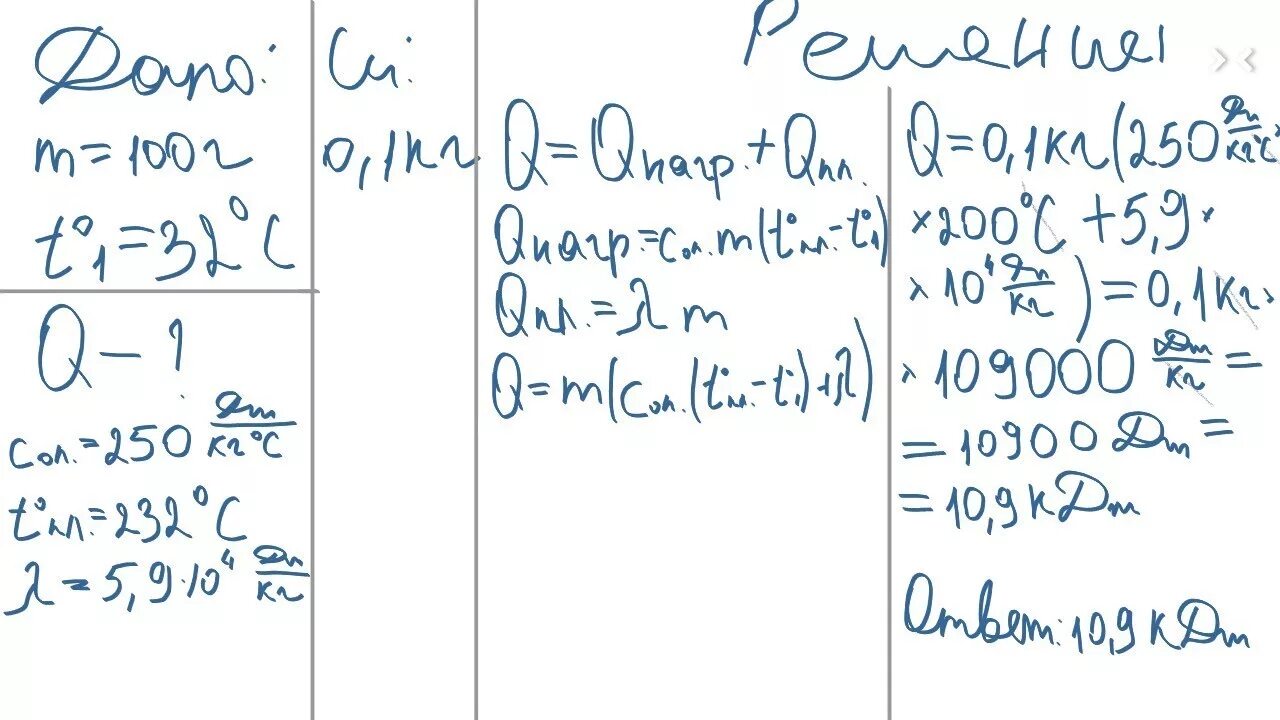 Дано:
m = 100 г
t°₁ = 32°C
Q – ?
c ол. = 250 Дж/кг°C
t° пл. = 232°C
λ = 5,9·10⁴ Дж/кг
Си:
0,1 кг
Решение
Q = Q нагр. + Q пл.
Q нагр. = c ол. m (t° пл. - t°₁)
Q пл. = λ m
Q = m (c ол. (t° пл. - t°₁) + λ)
Q = 0,1 кг (250 Дж/кг°C ×
× 200°C + 5,9 ×
× 10⁴ Дж/кг) = 0,1 кг ×
× 109000 Дж/кг =
= 10900 Дж =
= 10,9 кДж
Ответ: 10,9 кДж